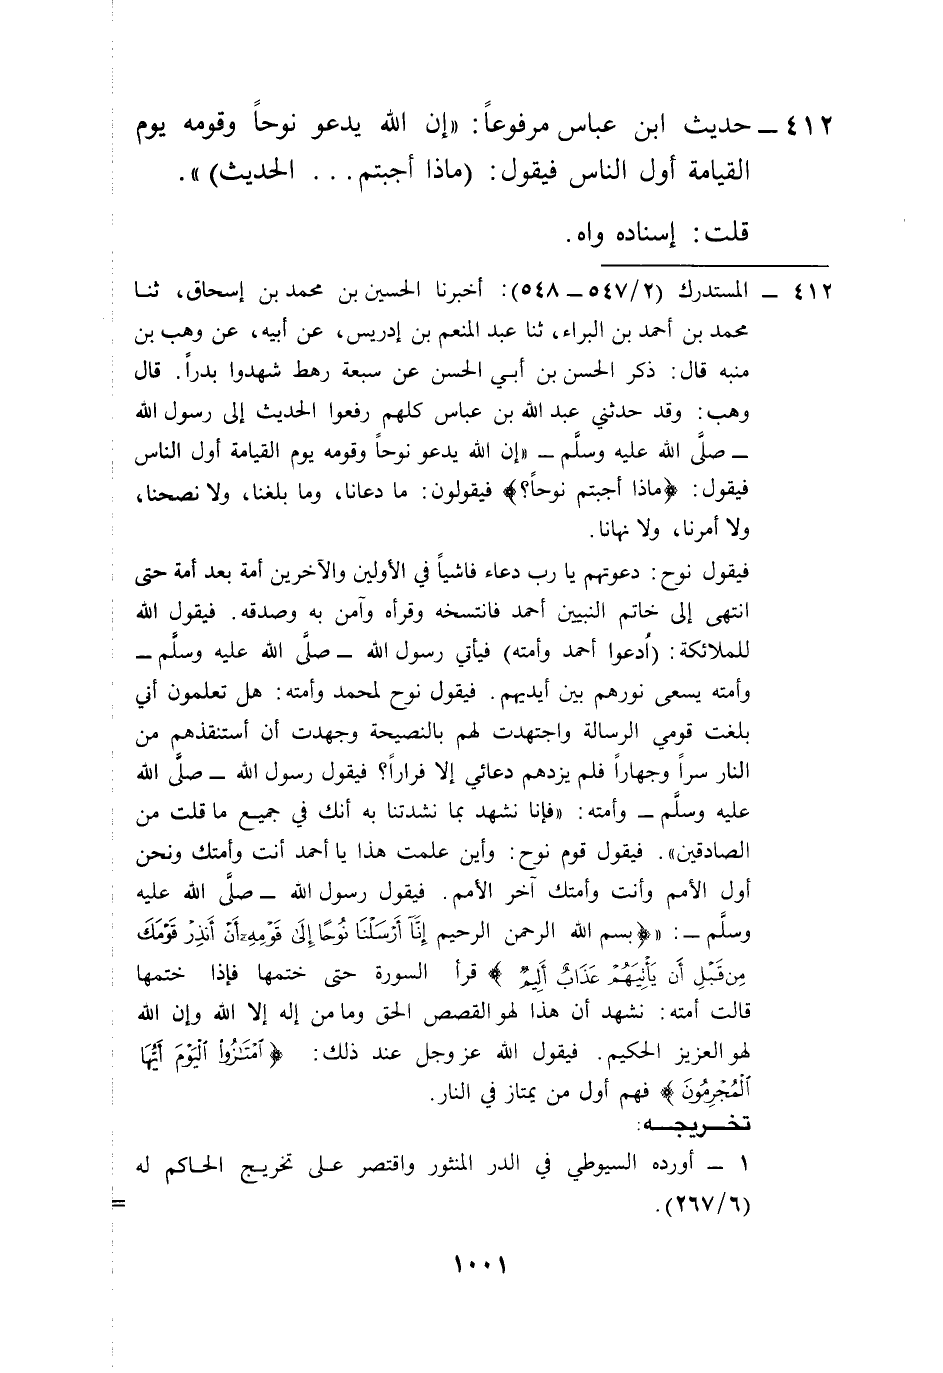 ٤١٢ ــ حديث ابن عباس مرفوعاً: «إن الله يدعو نوحاً وقومه يوم
القيامة أول الناس فيقول: (ماذا أجبتم. . . الحديث)».
قلت: إسناده واه.
٤١٢ ــ المستدرك (٥٤٧/٢ ــ ٥٤٨): أخبرنا الحسين بن محمد بن إسحاق، ثنا
محمد بن أحمد بن البراء، ثنا عبد المنعم بن إدريس، عن أبيه، عن وهب بن
منبه قال: ذكر الحسن بن أبي الحسن عن سبعة رهط شهدوا بدراً. قال
وهب: وقد حدثني عبد الله بن عباس كلهم رفعوا الحديث إلى رسول الله
ــ صلَّى الله عليه وسلَّم ــ «إن الله يدعو نوحاً وقومه يوم القيامة أول الناس
فيقول: ﴿ماذا أجبتم نوحاً؟﴾ فيقولون: ما دعانا، وما بلغنا، ولا نصحنا،
ولا أمرنا، ولا نهانا.
فيقول نوح: دعوتهم يا رب دعاء فاشياً في الأولين والآخرين أمة بعد أمة حتى
انتهى إلى خاتم النبيين أحمد فانتسخه وقرأه وآمن به وصدقه. فيقول الله
للملائكة: (اُدعوا أحمد وأمته) فيأتي رسول الله ــ صلَّى الله عليه وسلَّم ــ
وأمته يسعى نورهم بين أيديهم. فيقول نوح لمحمد وأمته: هل تعلمون أني
بلغت قومي الرسالة واجتهدت لهم بالنصيحة وجهدت أن أستنقذهم من
النار سراً وجهاراً فلم يزدهم دعائي إلا فراراً؟ فيقول رسول الله ــ صلَّى الله
عليه وسلَّم ــ وأمته: «فإنا نشهد بما نشدتنا به أنك في جميع ما قلت من
الصادقين». فيقول قوم نوح: وأين علمت هذا يا أحمد أنت وأمتك ونحن
أول الأمم وأنت وأمتك آخر الأمم. فيقول رسول الله ــ صلَّى الله عليه
وسلَّم ــ: «﴿بسم الله الرحمن الرحيم إِنَّآ أَرْسَلْنَا نُوحًا إِلَىٰ قَوْمِهِۦٓ أَنْ أَنذِرْ قَوْمَكَ
مِن قَبْلِ أَن يَأْتِيَهُمْ عَذَابٌ أَلِيمٌ ﴾ قرأ السورة حتى ختمها فإذا ختمها
قالت أمته: نشهد أن هذا لهو القصص الحق وما من إله إلا الله وإن الله
لهو العزيز الحكيم. فيقول الله عز وجل عند ذلك: ﴿ ٱمْتَـٰزُوا۟ ٱلْيَوْمَ أَيُّهَا
ٱلْمُجْرِمُونَ ﴾ فهم أول من يمتاز في النار.
تخـــريجـــه:
١ ــ أورده السيوطي في الدر المنثور واقتصر على تخريج الحاكم له
(٢٦٧/٦).
=
١٠٠١